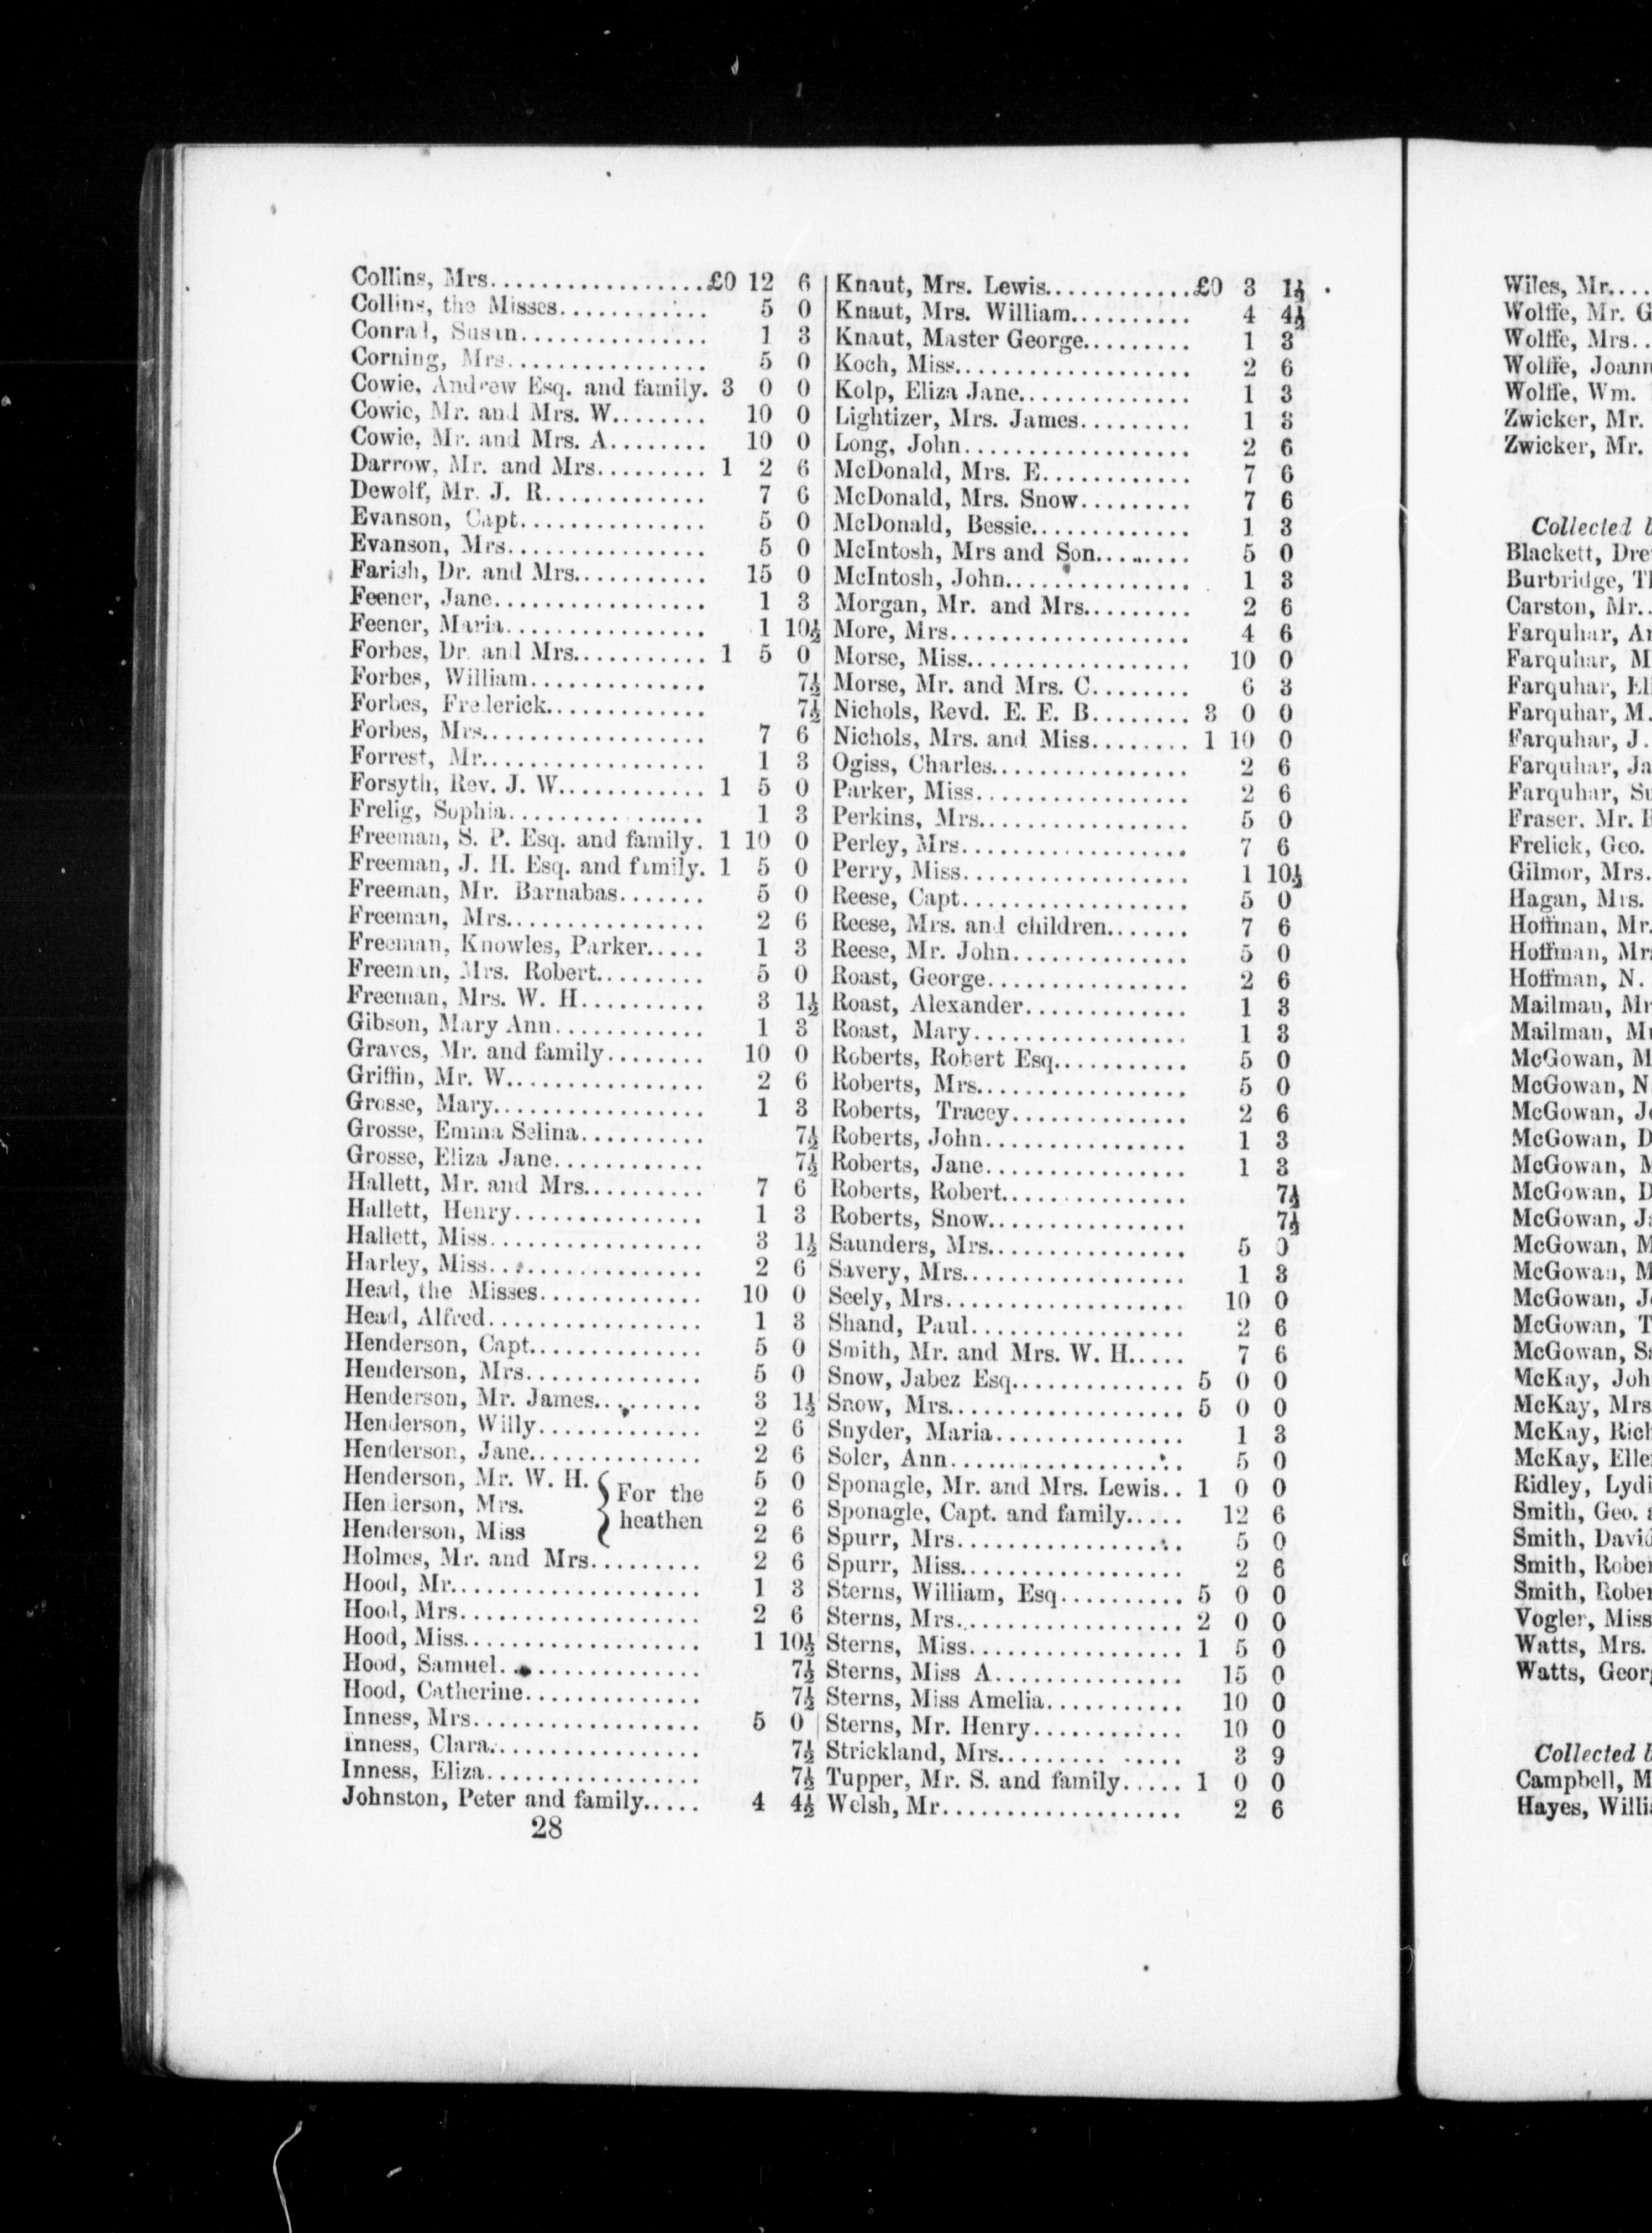 Collins, Mrs..................£0 12 6
Collins, the Misses............ 5 0
Conrad, Susan............... 1 3
Corning, Mrs................ 5 0
Cowie, Andrew Esq. and family. 3 0 0
Cowie, Mr. and Mrs. W........ 10 0
Cowie, Mr. and Mrs. A......... 10 0
Darrow, Mr. and Mrs......... 1 2 6
Dewolf, Mr. J. R............. 7 6
Evanson, Capt............... 5 0
Evanson, Mrs................ 5 0
Farish, Dr. and Mrs........... 15 0
Feener, Jane.................. 1 3
Feener, Maria................. 1 10½
Forbes, Dr. and Mrs........... 1 5 0
Forbes, William............... 7½
Forbes, Frederick............. 7½
Forbes, Mrs................... 7 6
Forrest, Mr................... 1 3
Forsyth, Rev. J. W............ 1 5 0
Frelig, Sophia................ 1 3
Freeman, S. P. Esq. and family. 1 10 0
Freeman, J. H. Esq. and family. 1 5 0
Freeman, Mr. Barnabas....... 5 0
Freeman, Mrs................. 2 6
Freeman, Knowles, Parker..... 1 3
Freeman, Mrs. Robert......... 5 0
Freeman, Mrs. W. H........... 3 1½
Gibson, Mary Ann............. 1 3
Graves, Mr. and family........ 10 0
Griffin, Mr. W................ 2 6
Grosse, Mary.................. 1 3
Grosse, Emma Selina.......... 7½
Grosse, Eliza Jane............ 7½
Hallett, Mr. and Mrs.......... 7 6
Hallett, Henry................ 1 3
Hallett, Miss.................. 3 1½
Harley, Miss.................. 2 6
Head, the Misses............. 10 0
Head, Alfred.................. 1 3
Henderson, Capt.............. 5 0
Henderson, Mrs............... 5 0
Henderson, Mr. James......... 3 1½
Henderson, Willy............. 2 6
Henderson, Jane.............. 2 6
Henderson, Mr. W. H. { For the 5 0
Henderson, Mrs. heathen 2 6
Henderson, Miss 2 6
Holmes, Mr. and Mrs......... 2 6
Hood, Mr..................... 1 3
Hood, Mrs.................... 2 6
Hood, Miss.................... 1 10½
Hood, Samuel................. 7½
Hood, Catherine............... 7½
Inness, Mrs................... 5 0
Inness, Clara................. 7½
Inness, Eliza.................. 7½
Johnston, Peter and family..... 4 4½
28
Knaut, Mrs. Lewis............£0 3 1½
Knaut, Mrs. William.......... 4 4½
Knaut, Master George......... 1 3
Koch, Miss.................... 2 6
Kolp, Eliza Jane.............. 1 3
Lightizer, Mrs. James......... 1 3
Long, John................... 2 6
McDonald, Mrs. E............ 7 6
McDonald, Mrs. Snow......... 7 6
McDonald, Bessie............. 1 3
McIntosh, Mrs and Son........ 5 0
McIntosh, John................ 1 3
Morgan, Mr. and Mrs......... 2 6
More, Mrs.................... 4 6
Morse, Miss................... 10 0
Morse, Mr. and Mrs. C........ 6 3
Nichols, Revd. E. E. B........ 3 0 0
Nichols, Mrs. and Miss........ 1 10 0
Ogiss, Charles................ 2 6
Parker, Miss.................. 2 6
Perkins, Mrs.................. 5 0
Perley, Mrs................... 7 6
Perry, Miss................... 1 10½
Reese, Capt................... 5 0
Reese, Mrs. and children....... 7 6
Reese, Mr. John.............. 5 0
Roast, George................. 2 6
Roast, Alexander.............. 1 3
Roast, Mary.................. 1 3
Roberts, Robert Esq........... 5 0
Roberts, Mrs.................. 5 0
Roberts, Tracey............... 2 6
Roberts, John................. 1 3
Roberts, Jane................. 1 3
Roberts, Robert............... 7½
Roberts, Snow................. 7½
Saunders, Mrs................. 5 0
Savery, Mrs................... 1 3
Seely, Mrs.................... 10 0
Shand, Paul.................. 2 6
Smith, Mr. and Mrs. W. H..... 7 6
Snow, Jabez Esq............... 5 0 0
Snow, Mrs.................... 5 0 0
Snyder, Maria................ 1 3
Soler, Ann.................... 5 0
Sponagle, Mr. and Mrs. Lewis.. 1 0 0
Sponagle, Capt. and family..... 12 6
Spurr, Mrs.................... 5 0
Spurr, Miss................... 2 6
Sterns, William, Esq.......... 5 0 0
Sterns, Mrs................... 2 0 0
Sterns, Miss.................. 1 5 0
Sterns, Miss A................ 15 0
Sterns, Miss Amelia........... 10 0
Sterns, Mr. Henry............ 10 0
Strickland, Mrs............... 3 9
Tupper, Mr. S. and family..... 1 0 0
Welsh, Mr.................... 2 6
Wiles, Mr....
Wolffe, Mr. G
Wolffe, Mrs..
Wolffe, Joann
Wolffe, Wm.
Zwicker, Mr.
Zwicker, Mr.
Collected b
Blackett, Dre
Burbridge, Th
Carston, Mr..
Farquhar, An
Farquhar, M
Farquhar, Eli
Farquhar, M.
Farquhar, J.
Farquhar, Ja
Farquhar, Su
Fraser, Mr.
Frelick, Geo.
Gilmor, Mrs.
Hagan, Mrs.
Hoffman, Mr.
Hoffman, Mrs
Hoffman, N.
Mailman, Mr
Mailman, Mr
McGowan, M
McGowan, N
McGowan, Jo
McGowan, D
McGowan, M
McGowan, D
McGowan, Ja
McGowan, M
McGowan, M
McGowan, Jo
McGowan, T
McGowan, Sa
McKay, Joh
McKay, Mrs
McKay, Rich
McKay, Elle
Ridley, Lydi
Smith, Geo.
Smith, David
Smith, Rober
Smith, Rober
Vogler, Miss
Watts, Mrs.
Watts, Georg
Collected b
Campbell, M
Hayes, Willia